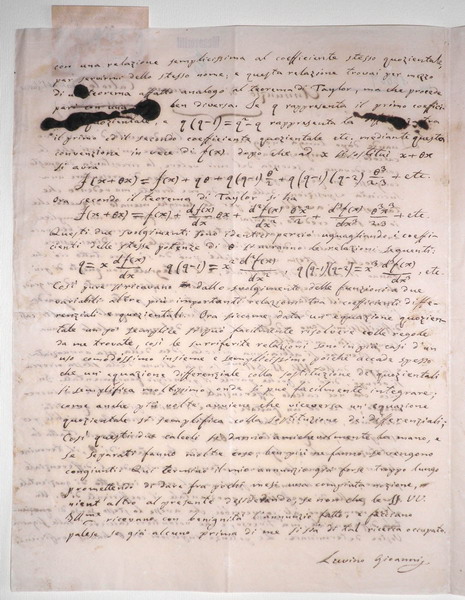 con una relazione semplicissima al coefficiente stesso quoziental,
per servirmi dello stesso nome; e questa relazione trovai per mezzo
di un teorema affatto analogo al teorema di Taylor, ma che procede
però con una ben diversa. Se q rappresenta il primo coeffici-
quozientale, e q(q-1)=q²-q rappresenta
il primo ed il secondo coefficiente quozientale etc. mediante questa
convenzione in vece di f(x), dopo che ad x x+θx
si avrà
f(x+θx) = f(x) + qθ + q(q-1) θ²/2 + q(q-1)(q-2) θ³/2·3 + etc.
Ora secondo il teorema di Taylor si ha
f(x+θx) = f(x) + df(x)/dx θx + d²f(x)/dx² θ²x²/2 + d³f(x)/dx³ θ³x³/2·3 + etc.
Questi due svolgimenti sono identici perciò uguagliando i coeffi-
cienti delle stesse potenze di θ si avranno le relazioni seguenti:
q = x df(x)/dx, q(q-1) = x² d²f(x)/dx², q(q-1)(q-2) = x³ d³f(x)/dx³, etc.
Così pure si ricavano dallo svolgimento delle funzioni a due
variabili altre più importanti relazioni tra i coefficienti diffe-
renziali e quozientali. Ora siccome data un'equazione quozien-
tale un po' semplice si può facilmente risolvere colle regole
da me trovate, così le surriferite relazioni sono in più casi d'un
uso comodissimo insieme e semplicissimo poiché accade spesso
che un'equazione differenziale colla sostituzione dei quozientali
si semplifica moltissimo, onde si può facilmente integrare;
come anche più volte avviene che viceversa un'equazione
quozientale si semplifica colla sostituzione dei differenziali;
Così questi due calcoli si danno amichevolmente la mano, e
se separati fanno molte cose, ben più ne fanno se vengono
congiunti. Qui termino il mio annunzio già forse troppo lungo
promettendo di dare fra pochi mesi una compiuta
altro al presente desiderando, se non che le SS. VV.
Ill.me ricevano con benignità l'annunzio fatto, e facciano
palese se già alcuno prima di me si sia di tal ricerca occupato.
Giovanni